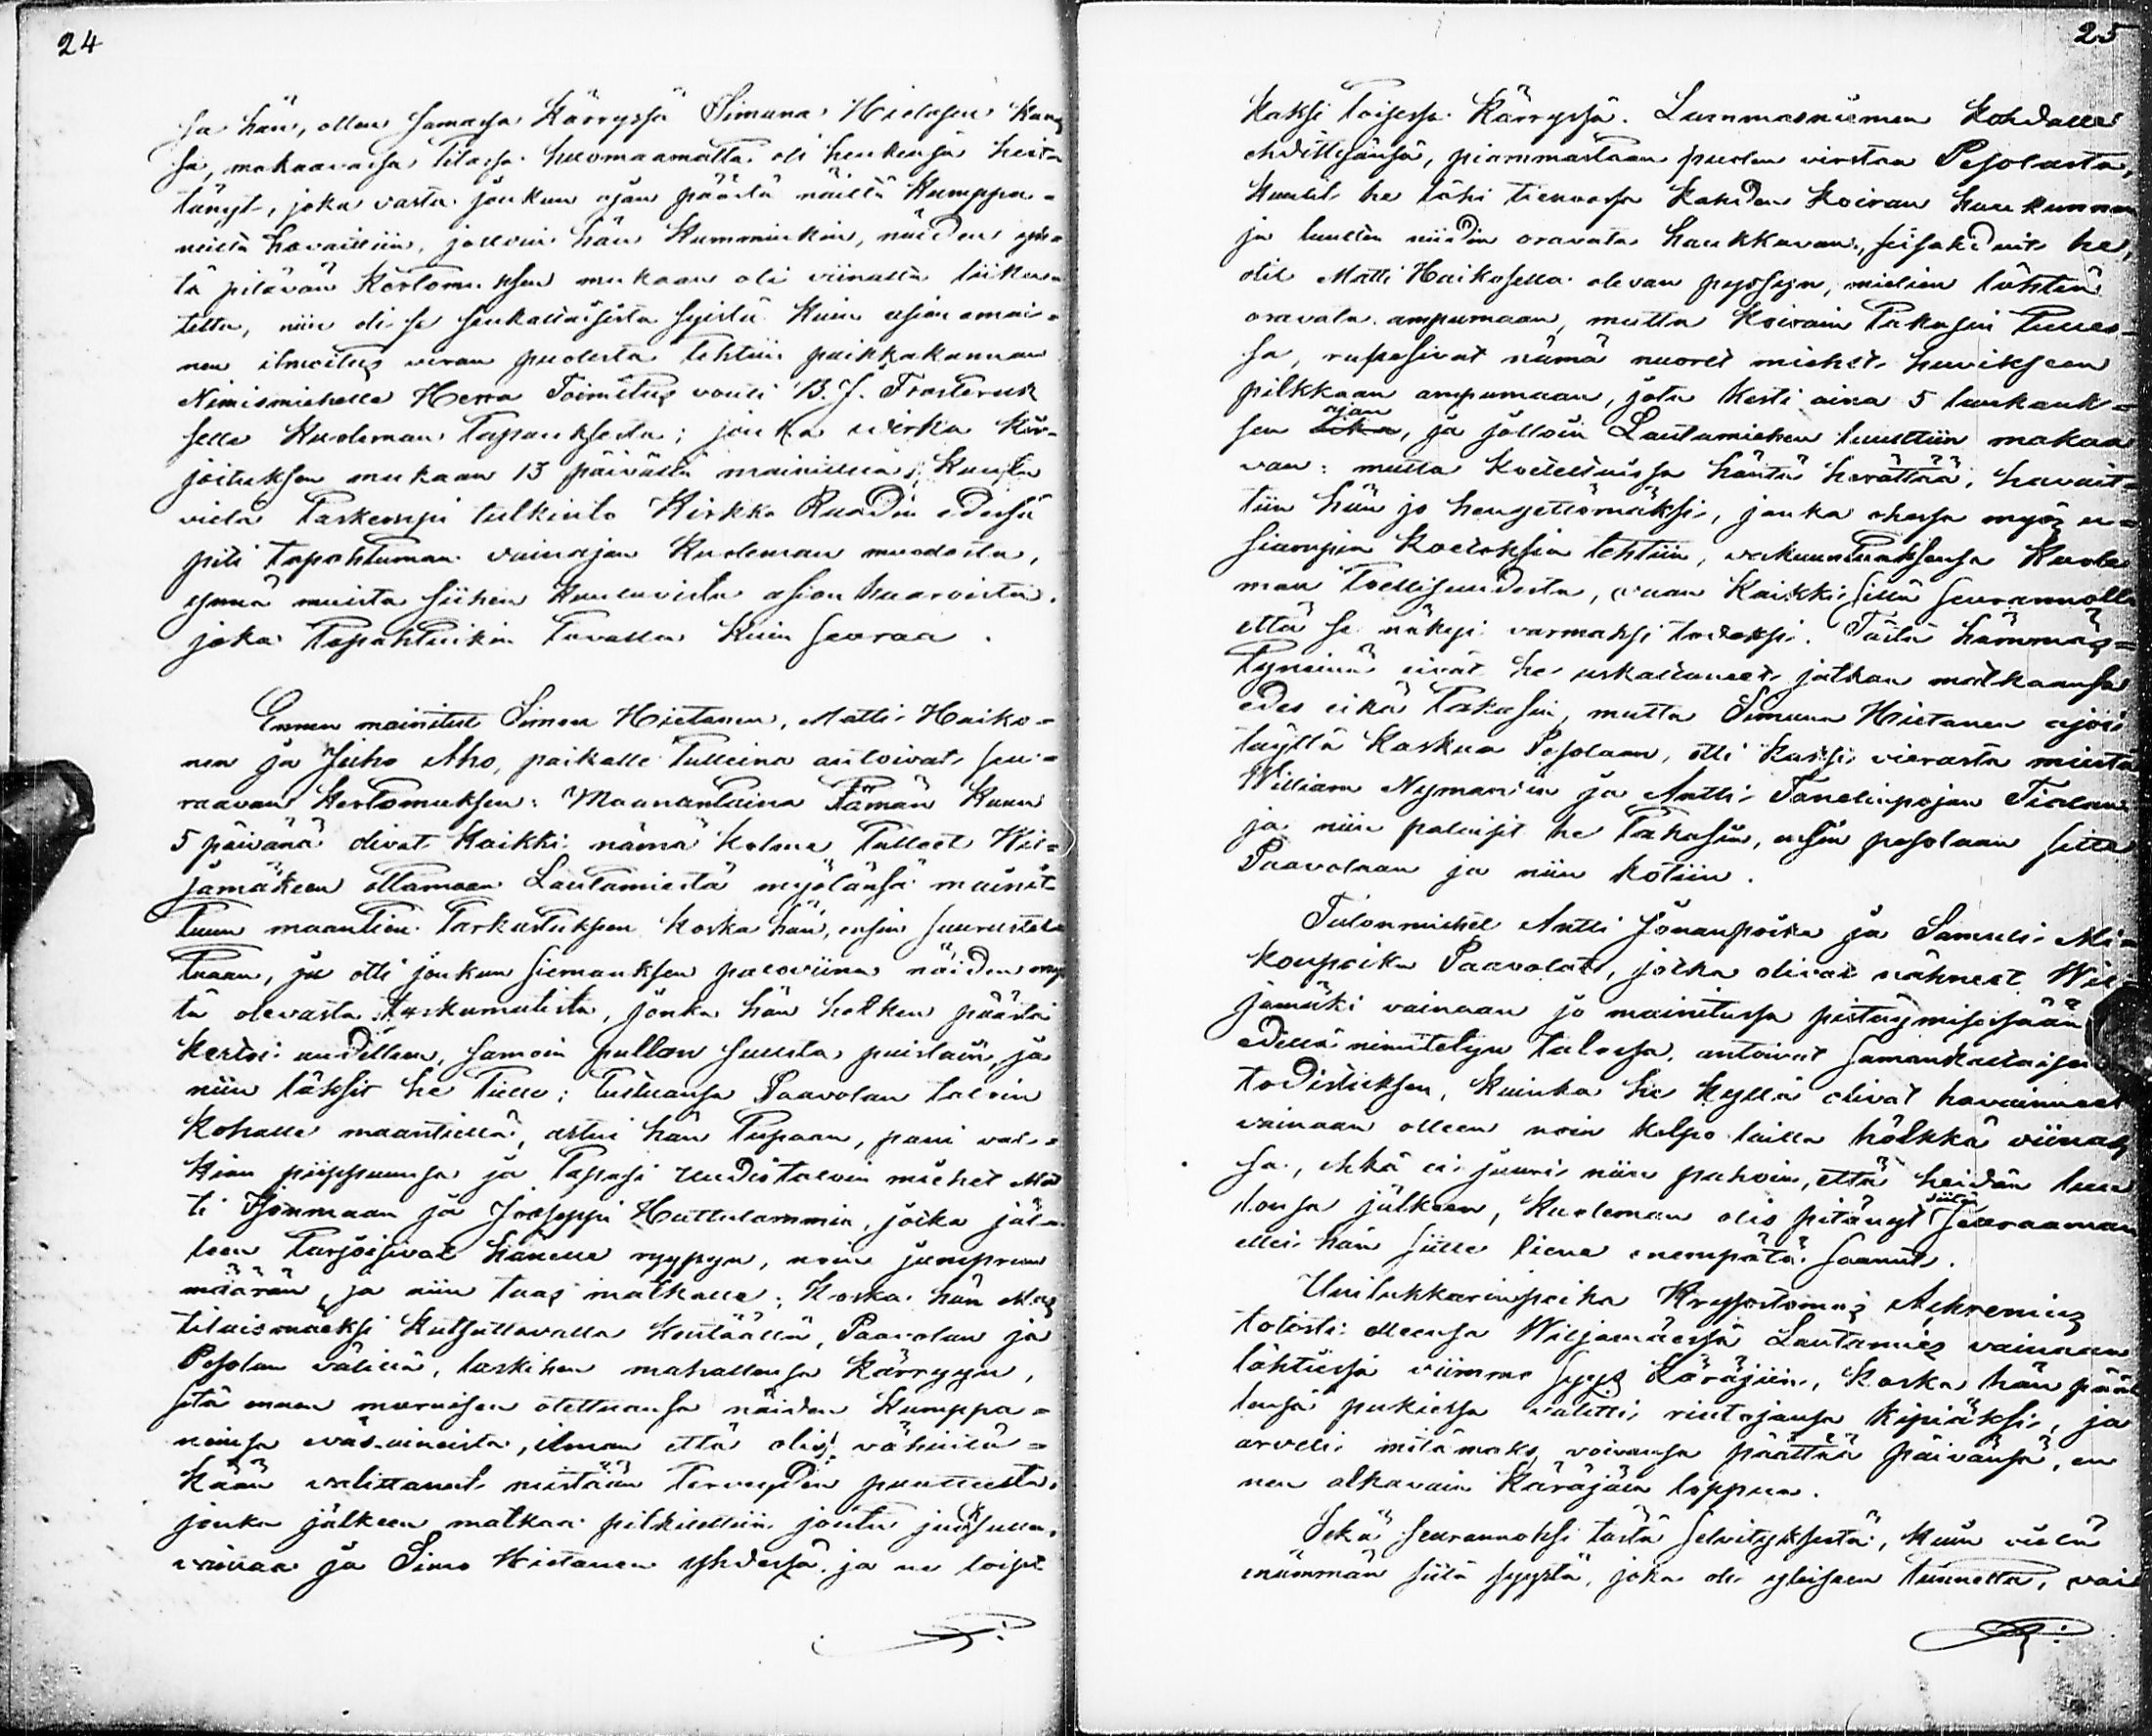 24
sa hän, ollen samassa Kärryssä Simuna Hietasen kans
sa, makaavassa tilassa huomaamatta oli henkensä heit=
tänyt, joka vasta jonkun ajan päästä näiltä Kumppa=
neilta havaittiin, jolloin hän kumminkin, näiden yh=
tä pitävän Kertomuksen mukaan oli viinalta liikutet
tettu, niin oli se senkaltaisista syistä kuin asian omai=
nen ilmoitus viran puolesta tehtiin paikkakunnan
Nimismiehelle Herra Toimitus vouti B. J. Frosterus
selle Kuoleman tapauksesta; jonka virka Kir=
joituksen mukaan 13 päivältä mainittua Kuuta
vielä tarkempi tutkinto Kirkko Raadin edessä
piti tapahtuman vainajan Kuoleman muodosta,
ynnä muista siihen kuuluvista asian haaroista.
joka tapahtuikin tavalla kuin seuraa.
Ennen mainitut Simon Hietanen, Matti Haiko=
nen ja Juho Aho, paikalle tulleina antoivat seu=
raavan kertomuksen: Maanantaina tämän Kuun
5 päivänä olivat kaikki nämä kolme tulleet Wil=
jamäkeen ottamaan Lautamiestä myötänsä mainit
tuun maantien tarkastukseen koska hän, ensin suurustet
tuaan, ja otti jonkun siemauksen paloviina näiden myö
tä olevasta taskumatista, jonka hän hetken päästä
kertoi uudellen, samoin pullon suusta puistain, ja
niin läksit he tielle; tultuansa Paavolan taloin
kohalle maantiellä, astui hän tupaan, pani val=
kian piippuunsa ja tapasi uudistaloin miehet Mat
ti Isonmaan ja Jooseppi Huttulammin, jotka jäl=
leen tarjoisivat hänelle ryypyn, noin jumprun
määrän, ja niin taas matkalle; Koska hän Mus
tilaismäeksi kutsuttavalla kentäällä, Paavolan ja
Pesolan välillä, laskihen mahallensa kärryyn,
sitä ennen murusen otettuansa näiden kumppa=
neinsa eväs-aineista, ilman että olisi vähintä=
kään valittanut mistään terveyden puutteesta,
jonka jälkeen matkaa pitkitettiin joutu juoksulla,
vainaa ja Simo Hietanen yhdessä, ja ne toiset
25
kaksi toisessa Kärryssä. Lummasniemen kohdalle
ehdittyänsä, piammastaan puolen virstaa Pesolasta,
kuulit he lähi tienoossa kahden koiran haukunnan
ja luullen niiden oravata haukkuvan, seisahduit he,
olit Matti Haikosella olevan pyssyn, mielien lähteä
oravata ampumaan, mutta koirain takasin tulles=
sa, rupesivat nämä nuoret miehet huvikseen
pilkkaan ampumaan, jota kesti aina 5 laukauk=
sen ajan, ja jolloin Lautamiehen luultiin makaa
van: mutta koetellaissa häntä herättää, havait=
tiin hän jo hengettömäksi, jonka ohessa myös en=
siampia koetoksia tehtiin, vakuuttaaksensa kuole
man toellisuudesta, vaan kaikki sillä seurannolla
että se näkyi varmaksi todeksi. Tästä hämmäs=
tyneinä eivät he uskaltaneet jatkaa matkaansa
edes eikä takasin, mutta Simuna Hietanen ajoi
täyttä kaskua Pesolaan, otti kaksi vierasta miestä
William Nyman'in ja Antti Tanelinpojan Tialan
ja niin palaisit he takasin, ensin pesolaan sitte
Paavolaan ja niin kotiin.
Talonmiehet Antti Jönanpoika ja Samuli Mi=
konpoika Paavolat, jotka olivat nähneet Wil
jamäki vainaan jo mainitussa pistäymisessään
edellä nimitetyn talossa, antoivat samankaltaisen
todistuksen, kuinka he kyllä olivat havainneet
vainaan olleen noin kelpo lailla hölkkä viinas
sa, ehkä ei juuri niin pahoin, että heidän luu
lonsa jälkeen, Kuoleman olis pitänyt siitä seuraaman
ellei hän sille liene enempätä saanut.
Unilukkarinpoika Krysostomus Achrenius
totisti olleensa Wiljamäessä Lautamies vainaan
lähtiissä viimme syys Käräjiin, koska hän pääl
lensä pukiessa valitti rintojansa kipiäksi, ja
arveli mitämaks voivansa päättää päivänsä, en
nen alkavain Käräjäin loppua.
Sekä seurannoksi tästä selvityksestä, kuin vielä
enämmän siitä syystä, joka oli yleiseen tunnettu, vai